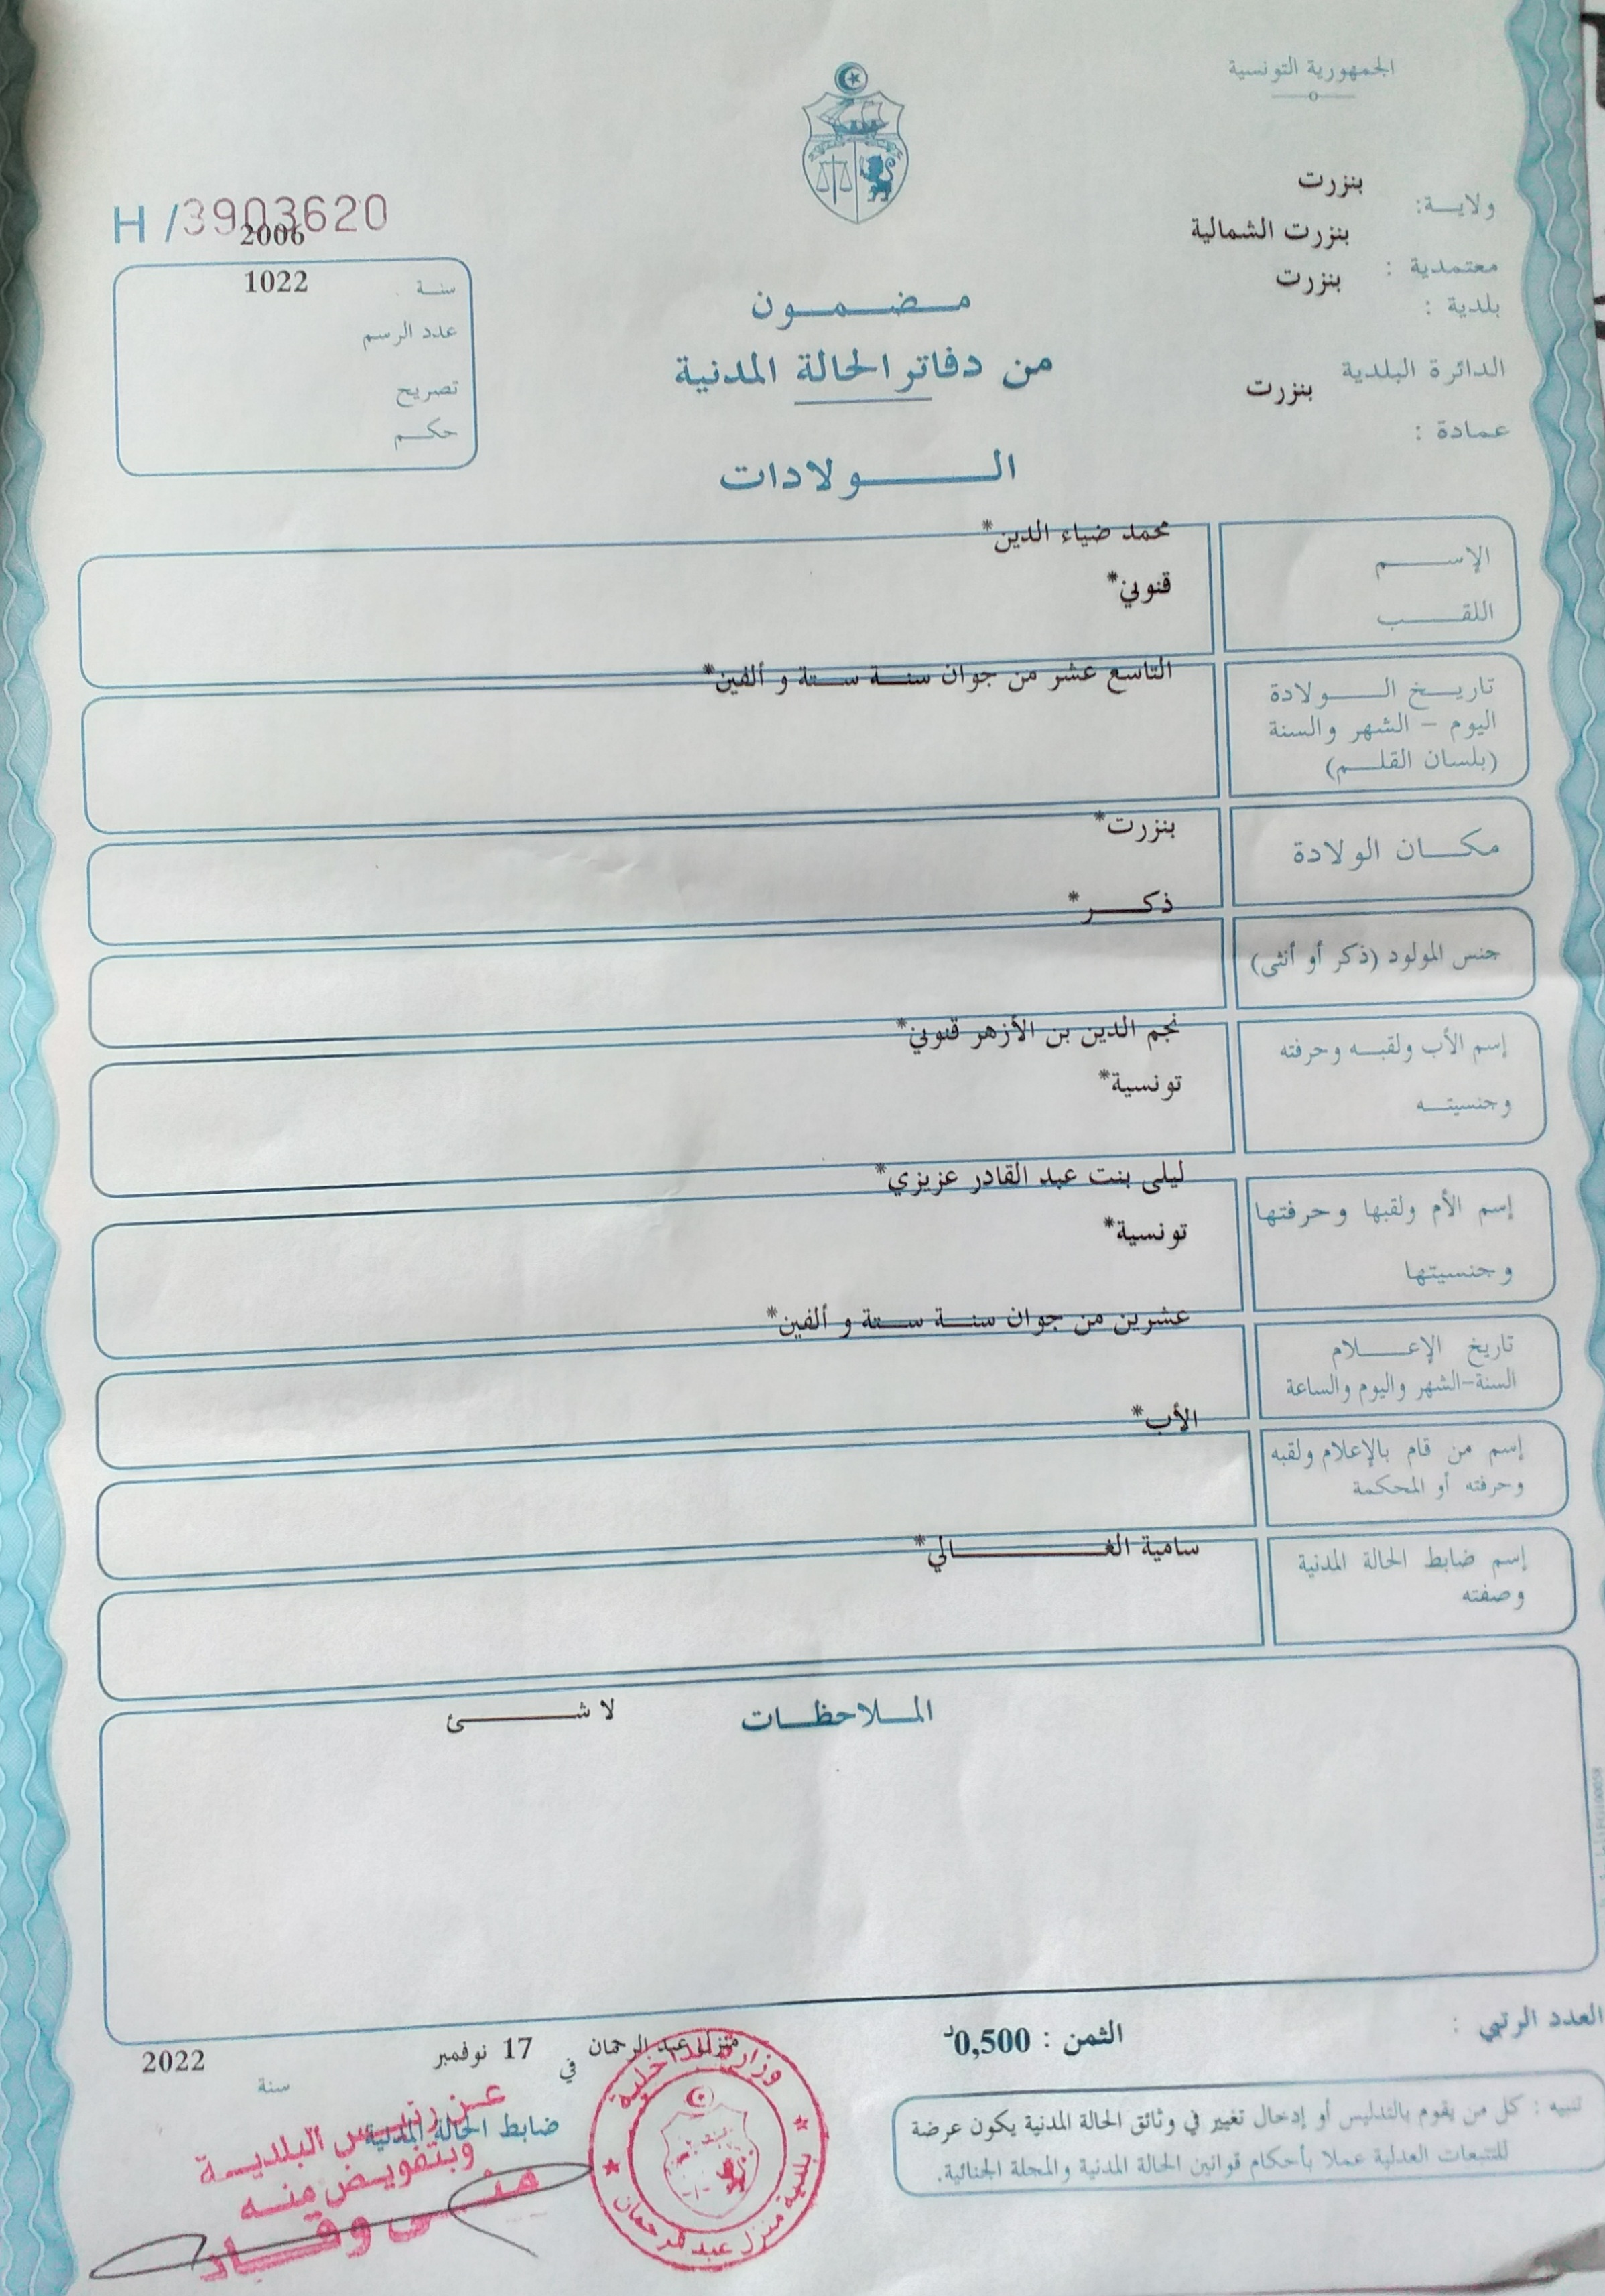 الجمهورية التونسية
ولاية: بنزرت
معتمدية : بنزرت الشمالية
بلدية : بنزرت
الدائرة البلدية
عمادة : بنزرت
H /3903620
2006
سنة 1022
عدد الرسم
تصريح
حكم
مضمون
من دفاتر الحالة المدنية
الولادات
الإسم محمد ضياء الدين*
اللقب قنوني*
تاريخ الولادة التاسع عشر من جوان سنة ستة و ألفين*
اليوم - الشهر والسنة
(بلسان القلم)
مكان الولادة بنزرت*
جنس المولود (ذكر أو أنثى) ذكر*
إسم الأب ولقبه وحرفته نجم الدين بن الأزهر قنوني*
وجنسيته تونسية*
إسم الأم ولقبها وحرفتها ليلى بنت عبد القادر عزيزي*
وجنسيتها تونسية*
تاريخ الإعلام عشرين من جوان سنة ستة و ألفين*
السنة-الشهر واليوم والساعة
إسم من قام بالإعلام ولقبه الأب*
وحرفته أو المحكمة
إسم ضابط الحالة المدنية سامية الغالي*
وصفته
الملاحظات لا شئ
العدد الرتبي :
الثمن : 0,500د
منزل عبد الرحمان في 17 نوفمبر سنة 2022
ضابط الحالة المدنية
تنبيه : كل من يقوم بالتدليس أو إدخال تغيير في وثائق الحالة المدنية يكون عرضة
للتتبعات العدلية عملا بأحكام قوانين الحالة المدنية والمجلة الجنائية.
وزارة الداخلية
بلدية منزل عبد الرحمان
عن رئيس البلدية
وبتفويض منه
منى وقاد